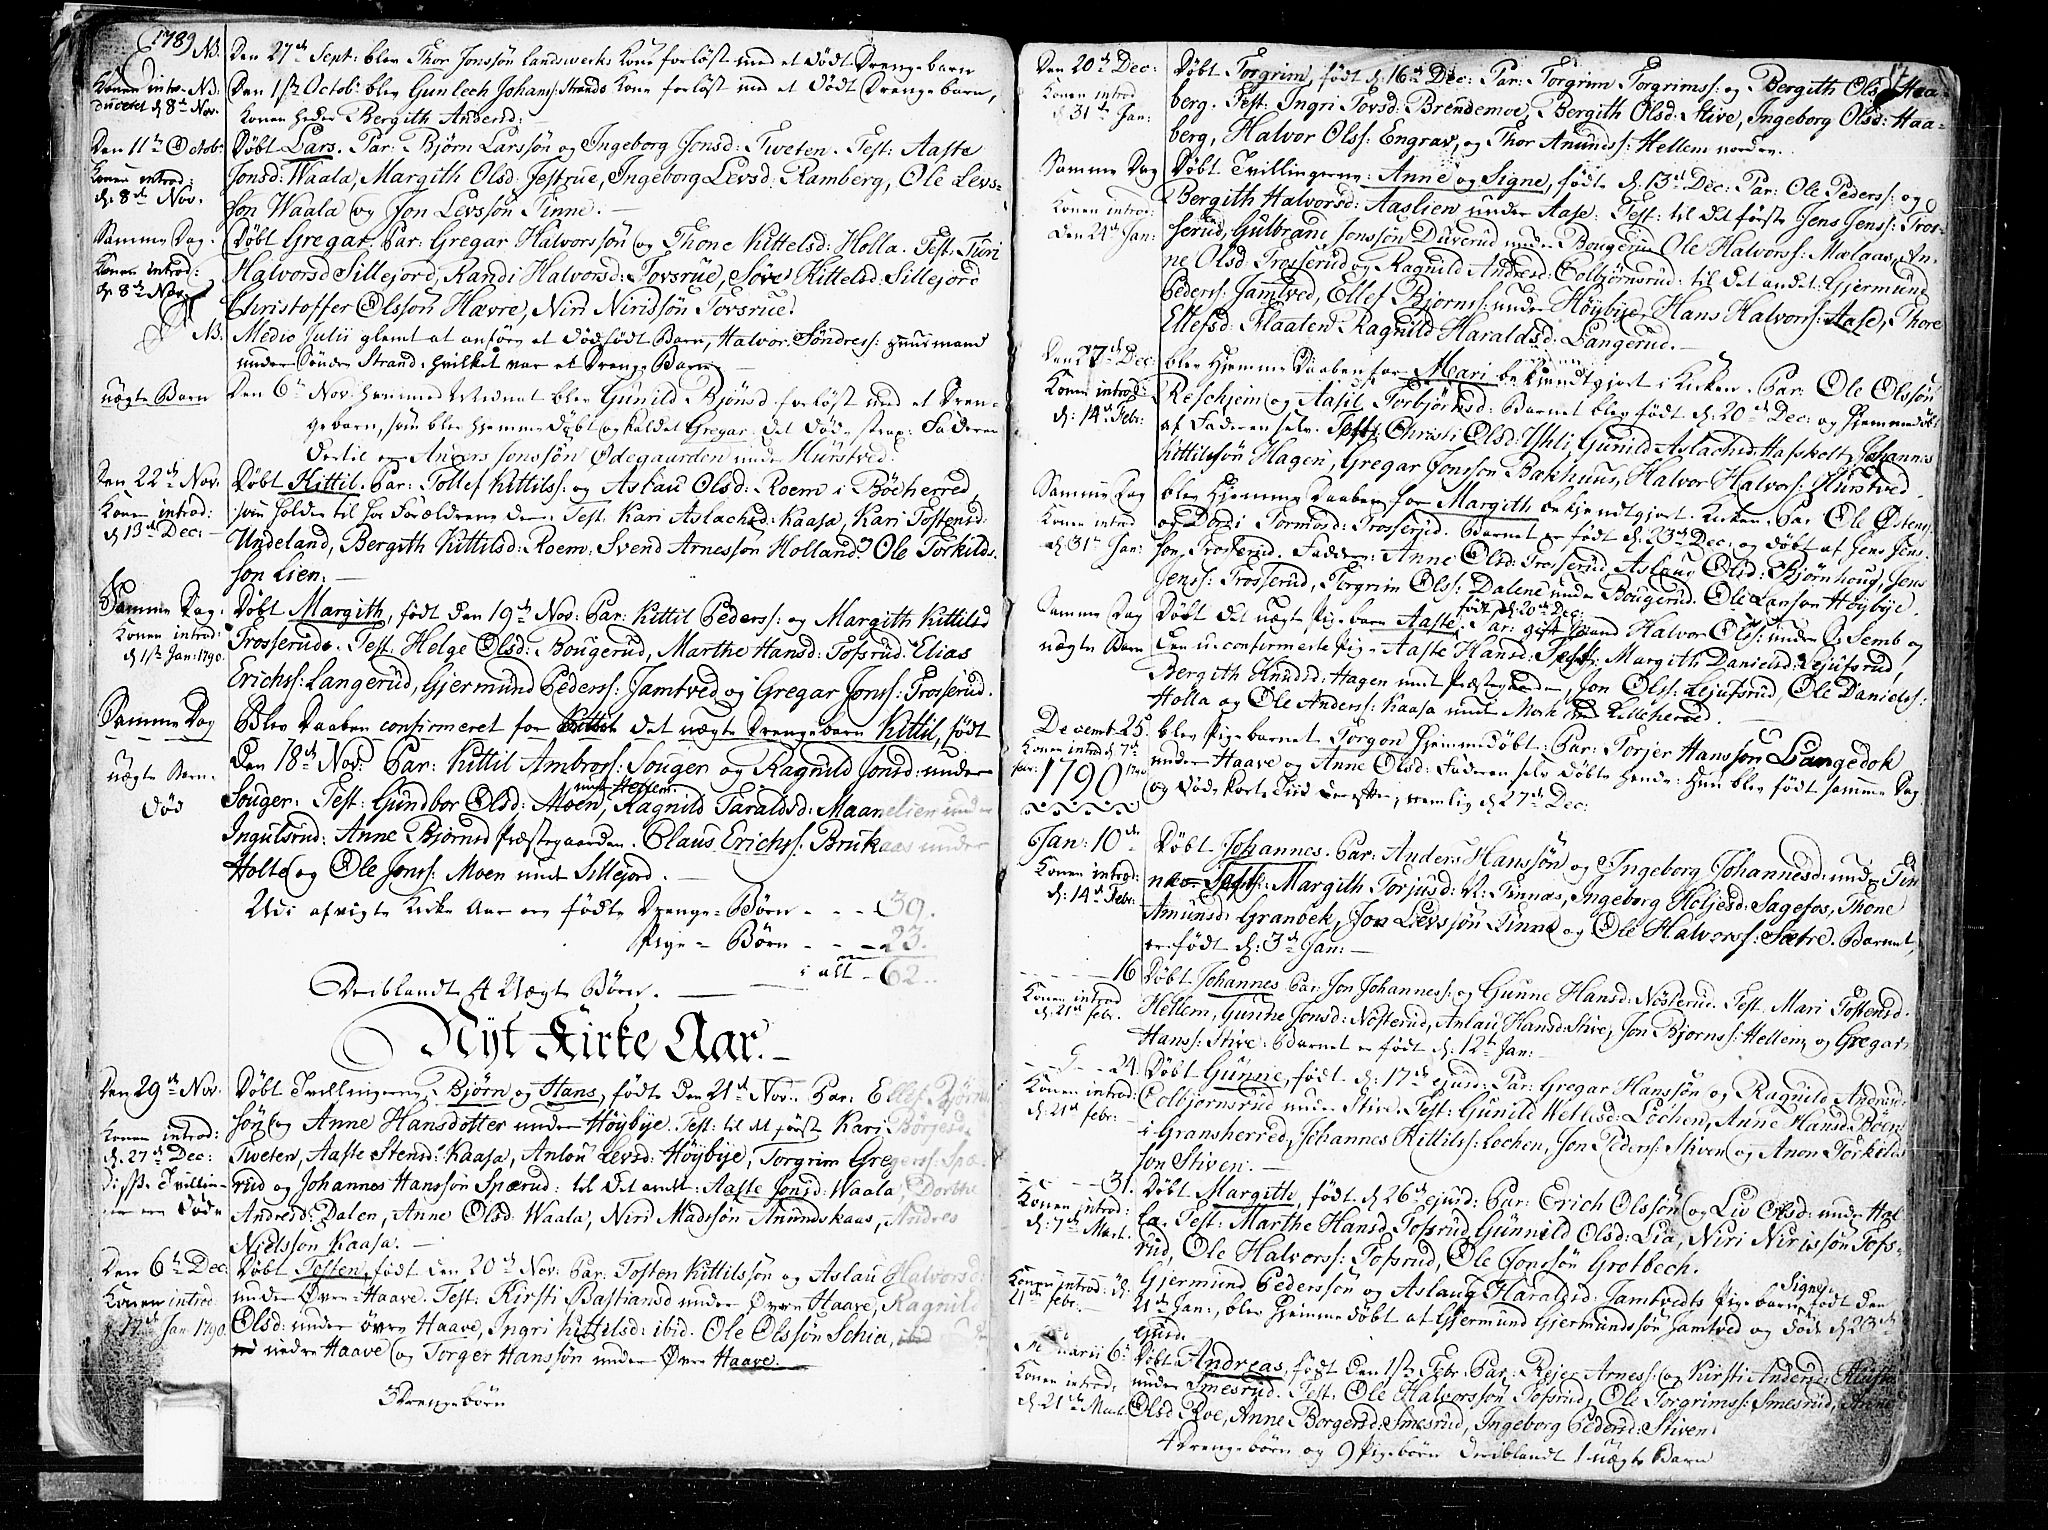 1789
NB. Den 27de Sept: blev Thor Jonssøn Landswerks Kone forløst med et dødt Drengebarn
Konen intro- NB.
duceret d. 8de Nov.
Den 1ste Octobr blev Gunlech Johans: Strands Kone forløst med et dødt Drengebarn,
Konen heder Bergith Andersd: —
Den 11te Octobr
Konen introd:
d: 8de Nov.
Døbt Lars. Par: Bjørn Larssøn og Ingeborg Jonsd: Tweten. Test: Aaste
Jonsd: Waala, Margith Olsd: Jestrue, Ingeborg Levsd: Ramberg, Ole Levs-
søn Waala og Jon Levssøn Tinne. —
Samme Dag.
Konen introd:
d: 8de Nov.
Døbt Gregar. Par: Gregar Halvorssøn og Thone Kittelsd: Holla. Test: Turi
Halvorsd Sillejord, Randi Halvorsd: Tovsrue, Søve Kittelsd: Sillejord
Christoffer Olssøn Hævre, Niri Nirissøn Tovsrue.
NB. Medio Julii glemt at anføre et dødfødt Barn, Halvor Søndress: Huusmand
under Søndre Strand: hvilket var et Drenge Barn. —
uægte Barn
Den 6te Nov: blev Gunild Bjønsd forløst med et Dren-
gebarn, som blev hjemmedøbt og kaldet Gregar. det døde strax. Faderen
dertil er Anders Jonssøn Ødegaarden under Hurstved.
Den 22de Nov.
Konen introd:
d 13de Dec: —
Døbt Kittil. Par: Tollef Kittilss: og Aslau Olsd: Roem i Bøeherred,
som holder til hos Forældrene der. Test: Kari Aslachsd: Kaasa, Kari Tostensd:
Undeland, Bergith Kittilsd: Roem, Svend Arnessøn Holland, Ole Torkilds-
søn Lien. —
Samme Dag.
Konen introd:
d 1ste Jan: 1790.
Døbt Margith, født den 19de Nov: Par: Kittil Peders: og Margith Kittilsd
Trosserud. Test: Helge Olsd: Bougerud, Marthe Hansd: Tofsrud. Elias
Erichss: Langerud, Gjermund Peders: Jamtved og Gregar Jonss: Trosserud.
Samme Dag
uægte Barn.
død
Blev Daaben confirmeret for det uægte Drengebarn Kittil, født
Den 18de Nov: Par: Kittil Ambross: Souger og Ragnild Jonsd: under
Souger. Test: Gundbor Olsd: Moen under Hellem, Ragnild Taraldsd: Maanelien under
Ingulsrud: Anne Bjørnsd Præstegaarden. Claus Erichss: Brukaas under
Holte og Ole Jonss: Moen under Sillejord. —
Udi afvigte Kirke Aar ere fødte Drenge-Børn - - - 39.
Pige-Børn - - - 23.
i alt - 62.
Deriblandt 4 Uægte Børn. —
Nyt Kirke Aar. —
Den 29de Nov.
Konen introd:
d. 27de Dec:
disse Tvillin-
ger ere døde
Døbt Tvillingerne Bjørn og Hans, fødte den 21de Nov: Par: Ellef Bjørns
søn og Anne Hansdotter under Høybye. Test: til det første Kari Børjesd:
Tweten, Aaste Stensd: Kaasa, Anlou Levsd: Høybye, Torgrim Gregers: Spæ-
rud og Johannes Hanssøn Spærud: til det andet: Aaste Jonsd: Waala, Dorthe
Andresd: Dalen, Anne Olsd: Waala, Niri Madssøn Anundskaas, Andres
Nielssøn Kaasa. —
Den 6te Dec:
Konen introd
d 17de Jan 1790.
Døbt Tosten, født den 20de Nov: Par: Tosten Kittilssøn og Aslau Halvorsd:
under Øvre Haave. Test: Kirsti Bastiansd under Øvre Haave, Ragnild
Olsd: under øvre Haave, Ingri Kittilsd: ibid. Ole Olssøn Schia,
under Haave og Torger Hanssøn under Øvre Haave.
3 Drengebørn
Den 20de Dec:
Konen introd
d 31te Jan:
Døbt Torgrim, født d: 16de Dec: Par: Torgrim Torgrimss: og Bergith Olsd Haa-
berg. Test: Ingri Tovsd: Brendemoe, Bergith Olsd: Stive, Ingeborg Olsd: Haa-
berg, Halvor Olss: Engrav, og Thor Anunds: Hellem nordre.
Samme Dag
Konen introd:
den 24de Jan:
Døbt Tvillingerne: Anne og Signe, fødte d: 13de Dec: Par: Ole Peders: og
Bergith Halvorsd: Aaslien under Aase: Test: til det første Jens Jenss: Tros-
serud, Gulbrand Jenssøn Duverud under Bougerud, Ole Halvorss: Mælaas, An-
ne Olsd Trosserud og Ragnild Andresd: Colbjørnsrud: til det andet: Gjermund
Peders: Jamtved, Ellef Bjørnss: under Høybye, Hans Halvorss: Aase, Thore
Ellefsd: Flaaten Ragnild Haraldsd: Langerud. —
Den 27de Dec:
Konen introd:
d: 14de Febr:
blev Hjemme Daaben for Mari bekjendtgjort i Kirken. Par: Ole Olssøn
Reschjem og Aasil Torbjørnsd: Barnet blev født d: 20de Dec: og hjemmedøbt
af Faderen selv. Test: Christi Olsd: Yhli, Gunild Aslachsd: Hafskelt, Johannes
Kittilssøn Hagen, Gregar Jonssøn Bakhuus, Halvor Halvors: Hurstved.
Samme Dag
Konen introd
d: 31te Jan:
blev Hjemme Daaben for Margith bekjendtgjort i Kirken. Par: Ole Østens-
Tormosd: Trosserud. Barnet er født d: 23de Dec: og døbt af Jens Jens-
søn Trosserud. Faddere: Anne Olsd: Trosserud Aslaug Olsd: Bjørnhoug, Jens
Jenss: Trosserud, Torgrim Olss: Dalene under Bougerud. Ole Larssøn Høybye.
Samme Dag
uægte Barn
Døbt det uægte Pigebarn Aaste, født d: 20de Dec: Par: gift Mand Halvor Olss: under S: Semb og
Den uconfirmerte Pige Aaste Hansd: Test: Margith Danielsd: Lejufsrud,
Bergith Knudsd: Hagen under Præstegaarden, Jon Olss: Lejufsrud, Ole Danielss:
Holla og Ole Anderss: Kaasa under Mork i Lilleherred. —
Decembr 25.
Konen introd d. 7de
Mar: 1790
blev Pigebarnet Torgon hjemmedøbt: Par: Torjer Hanssøn Langedok
under Haave og Anne Olsd: Faderen selv døbte hende: Hun blev født samme Dag
og døde korte Tiid derefter, nemlig d: 27de Dec:
1790
Jan: 10de
Konen introd:
d: 14de Febr:
Døbt Johannes. Par: Anders Hanssøn og Ingeborg Johannesd: under Tin
næs. Test: Margith Torjusd: N: Tinnæs, Ingeborg Holjesd: Sagefos, Thone
Amunsd: Granbek, Jon Levssøn Tinne og Ole Halvorss: Sætre. Barnet
er født d: 3de Jan: —
- - - - 16
Konen introd
d: 21de febr.
Døbt Johannes Par: Jon Johannes: og Gunne Hansd: Nøsterud. Test. Mari Tostensd.
Hellem, Gunne Jonsd: Nøsterud, Aslau Hansd: Stive, Jon Bjørnss: Hellem og Gregar
Hanss: Stive. Barnet er født d: 12te Jan: —
- - - 24
Konen introd:
d: 21de febr:
Døbt Gunne, født d: 17de ejusd: Par: Gregar Hanssøn og Ragnild Andresd:
Colbjørnsrud under Stive. Test: Gunild Wetlesd: Løchen, Anne Hansd: Bøen
i Gransherred, Johannes Kittilss: Løchen, Jon Peders: Stiven og Anon Torkilds
søn Stiven. —
- - - - 31.
Konen introd:
d: 7de Mart.
Døbt Margith, født d 26de ejusd: Par: Erich Olssøn og Liv Olsd: under Hol-
la. Test: Marthe Hansd Tofsrud, Gunnild Olsd: Lia, Niri Nirissøn Tofs-
rud, Ole Halvorss: Tofsrud, Ole Jonssøn Grotbech.
Konen introd: d:
21de febr. —
Gjermund Pederssøn og Aslaug Haraldsd: Jamtvedts Pigebarn Signe født den
21de Jan:, blev Hjemmedøbt af Gjermund Gjermundssøn Jamtved og døde d 23de
ejusd.
Februarii 6te
Konen introd:
d: 21de Mart.
Døbt Andreas, født den 1ste Febr. Par: Rejer Arness: og Kirsti Andersd:
under Smesrud. Test: Ole Halvorssøn Tofsrud, Ole Torgrimss: Smesrud, Anne
Olsd Roe, Anne Borgersd: Smesrud, Ingeborg Pedersd: Stiven.
4 Drengebørn og 9 Pigebørn deriblandt 1 uægte Barn